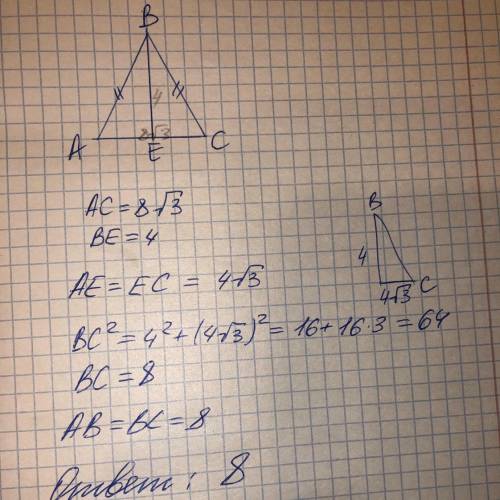 B
4
A
8√3
E
C
AC = 8√3
BE = 4
AE = EC = 4√3
B
4
4√3
C
BC² = 4² + (4√3)² = 16 + 16·3 = 64
BC = 8
AB = BC = 8
Ответ: 8